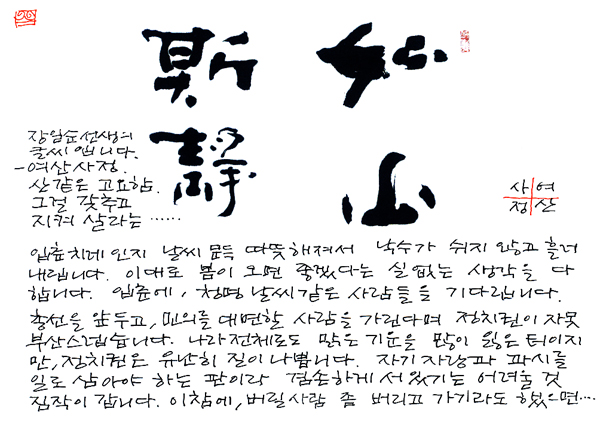 如山
斯靜
장일순선생의
글씨 입니다.
-여산사정.
산같은 고요함.
그걸 갖추고
지켜 살라는……
사여
정산
입춘치레 인지 날씨 문득 따뜻해져서 낙수가 쉬지 않고 흘러
내립니다. 이대로 봄이 오면 좋겠다는 실없는 생각을 다
합니다. 입춘에, 청명 날씨같은 사람들을 기다립니다.
총선을 앞두고, 민의를 대변할 사람을 가린다며 정치권이 자못
부산스럽습니다. 나라전체로도 맑은 기운을 많이 잃은 터이지
만, 정치권은 유난히 질이 나쁩니다. 자기자랑과 과시를
일로 삼아야 하는 판이라 겸손하게 서 있기는 어려울 것
짐작이 갑니다. 이참에, 버릴사람 좀 버리고 가기라도 했으면…